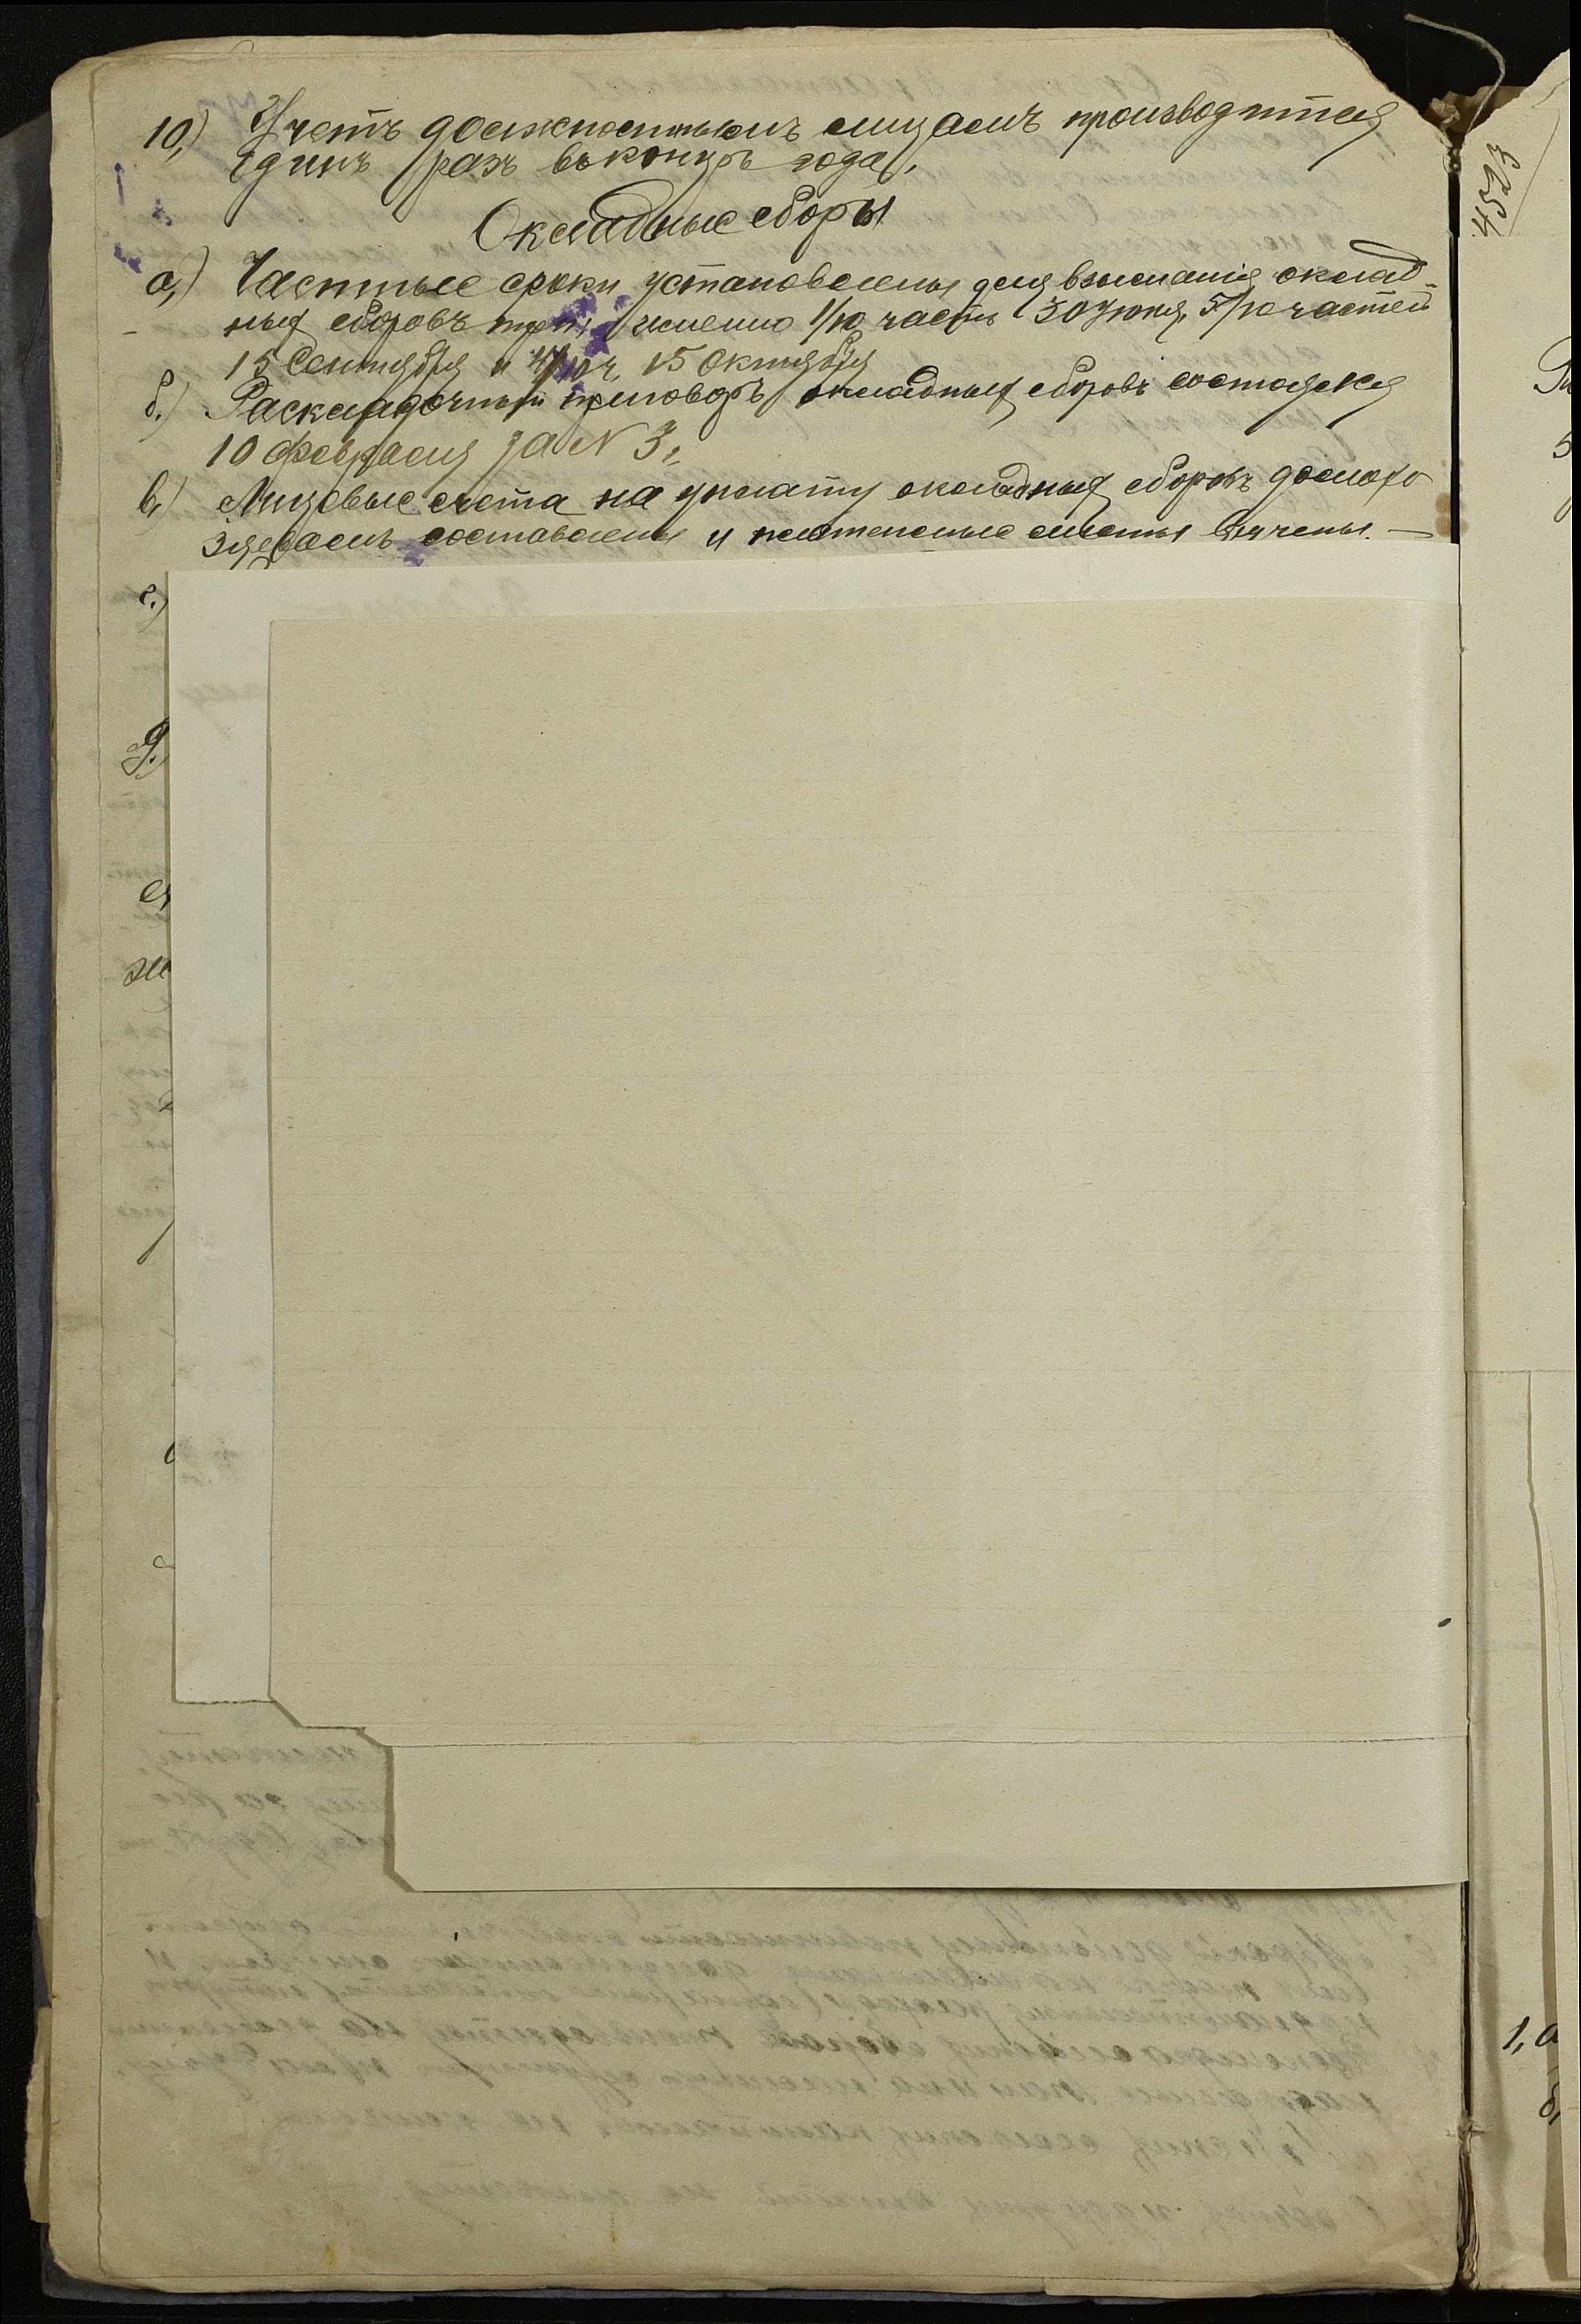 10,) Учетъ должностнымъ лицамъ производится
одинъ разъ въ концѣ года,
Окладные сборы
а,) Частные сроки установлены для взысканія оклад-
ныхъ сборовъ три, именно 1/10 часть 30 Іюня, 5/10 частей
15 Сентября и 4/10 ч. 15 Октября
б.) Раскладочный приговоръ окладныхъ сборовъ состоялся
10 февраля за N 3,
в,) Лицевые счета на уплату окладныхъ сборовъ домохо
зяевамъ составлены и платежные листы вручены. —
г.)
д.)
е,
ж
4523
1, а
б,